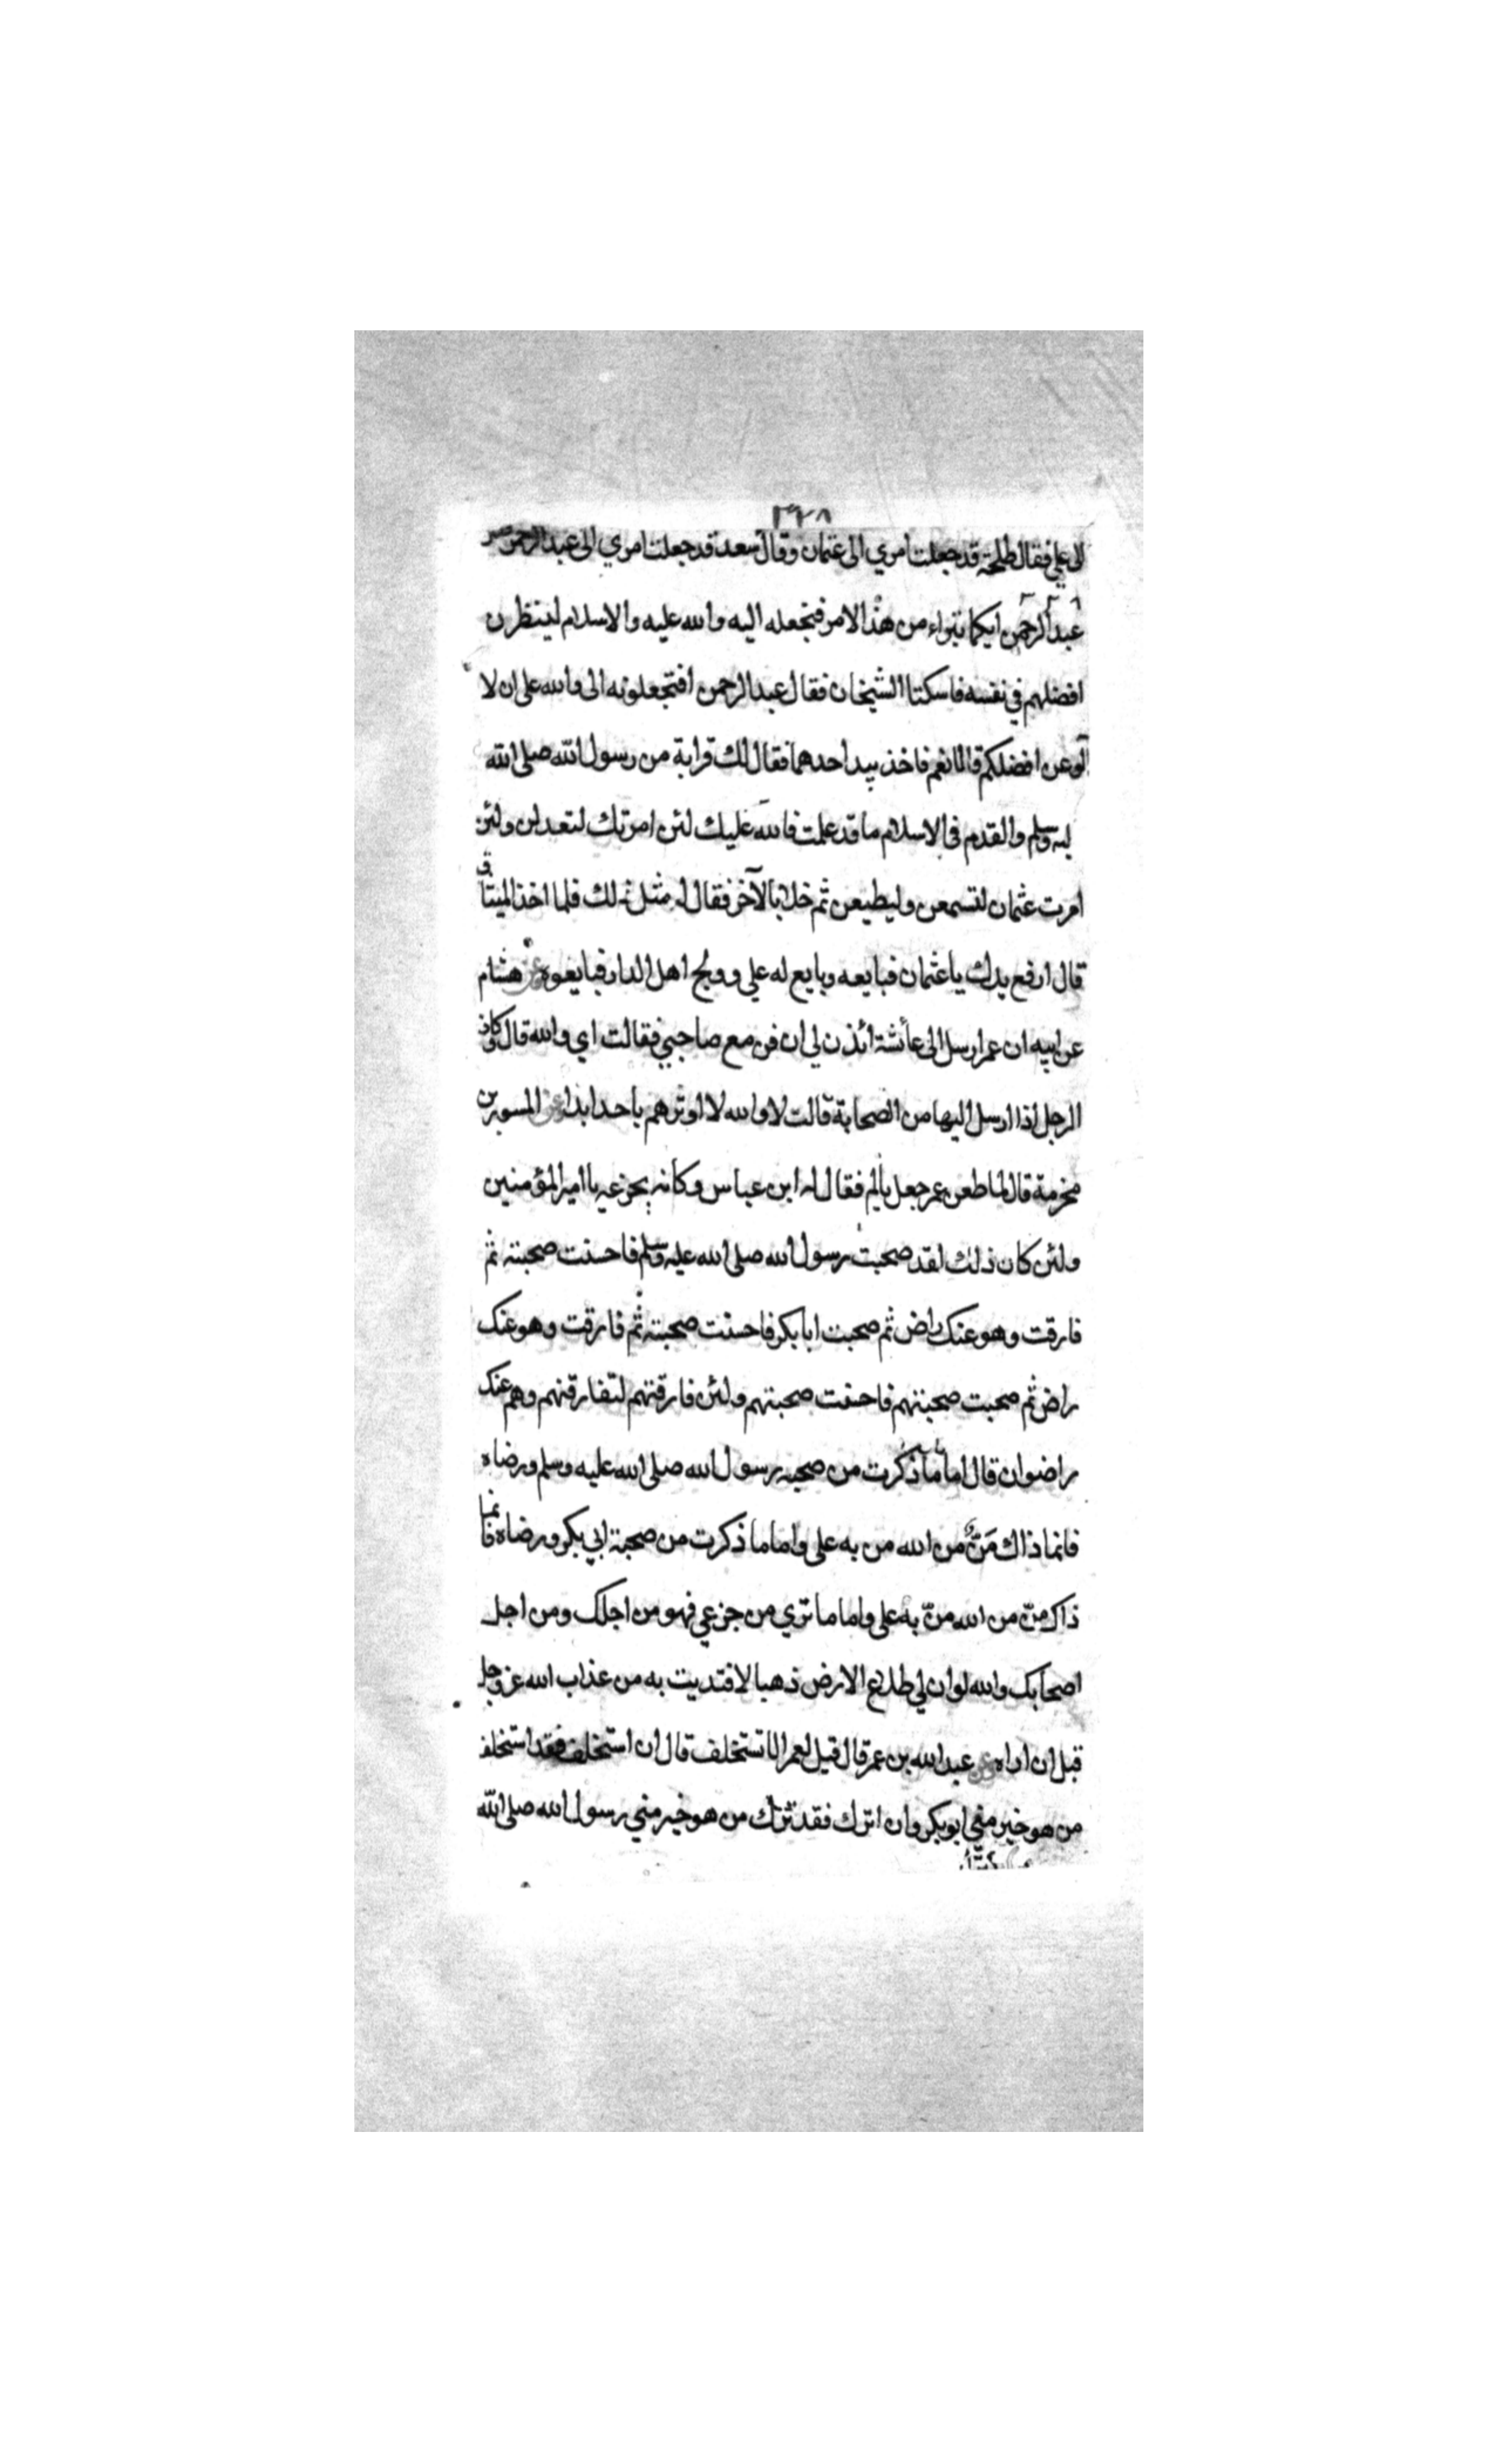 ٣٢٨
الى علي فقال طلحة قد جعلت امري الى عثمان وقال سعد قد جعلت امري الى عبد الرحمن
عبد الرحمن ايكما تبراء من هذا الامر فنجعله اليه والله عليه والاسلام لينظرن
افضلهم في نفسه فاسكتا الشيخان فقال عبد الرحمن افتجعلونه الى والله على ان لا
آلو عن افضلكم قالا نعم فاخذ بيد احدهما فقال لك قرابة من رسول الله صلى الله
ليه وسلم والقدم في الاسلام ما قد علمت فالله عليك لئن امرتك لتعدلن ولئن
امرت عثمان لتسمعن وليطيعن ثم خلا بالآخر فقال له مثل ذلك فلما اخذ الميثاق
قال ارفع يدك يا عثمان فبايعه وبايع له علي وولج اهل الدار فبايعوه عن هشام
عن ابيه ان عمر ارسل الى عائشة ائذن لي ان فن مع صاحبي فقالت اي والله قال وكان
الرجل اذا ارسل اليها من الصحابة قالت لا والله لا اوثرهم باحد ابدا عن المسور بن
مخرمة قال لما طعن عمر جعل يالم فقال له ابن عباس وكانه يجزعه يا امير المؤمنين
ولئن كان ذلك لقد صحبت رسول الله صلى الله عليه وسلم فاحسنت صحبته ثم
فارقت وهو عنك راض ثم صحبت ابا بكر فاحسنت صحبته ثم فارقت وهو عنك
راض ثم صحبت صحبتهم فاحسنت صحبتهم ولئن فارقتهم لتفارقنهم وهم عنك
راضوان قال اما ما ذكرت من صحبه رسول الله صلى الله عليه وسلم ورضاه
فانما ذاك مَنٌّ من الله من به على واما ما ذكرت من صحبة ابي بكر ورضاه فانما
ذاك منّ من الله منّ به على واما ما تري من جزعي فهو من اجلك ومن اجل
اصحابك والله لو ان لي طلاع الارض ذهبا لافتديت به من عذاب الله عز وجل
قبل ان اراه عن عبد الله بن عمر قال قيل لعمر الا تستخلف قال ان استخلف فقد استخلف
من هو خير مني ابو بكر وان اترك فقد ترك من هو خير مني رسول الله صلى الله